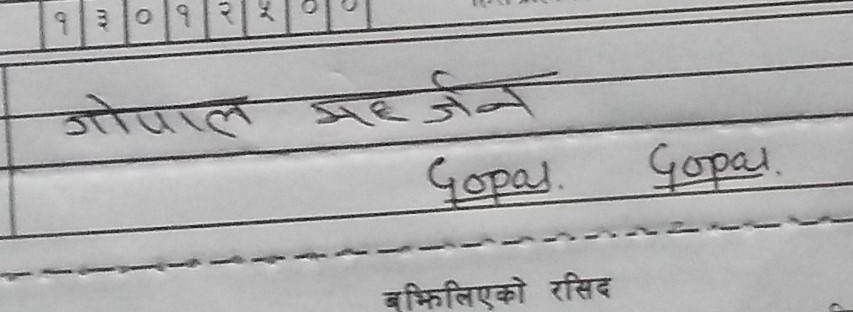 १ ३ ० १ २ ५ ० ०
गोपाल महर्जन
Gopal. Gopal.
बुझिलिएको रसिद